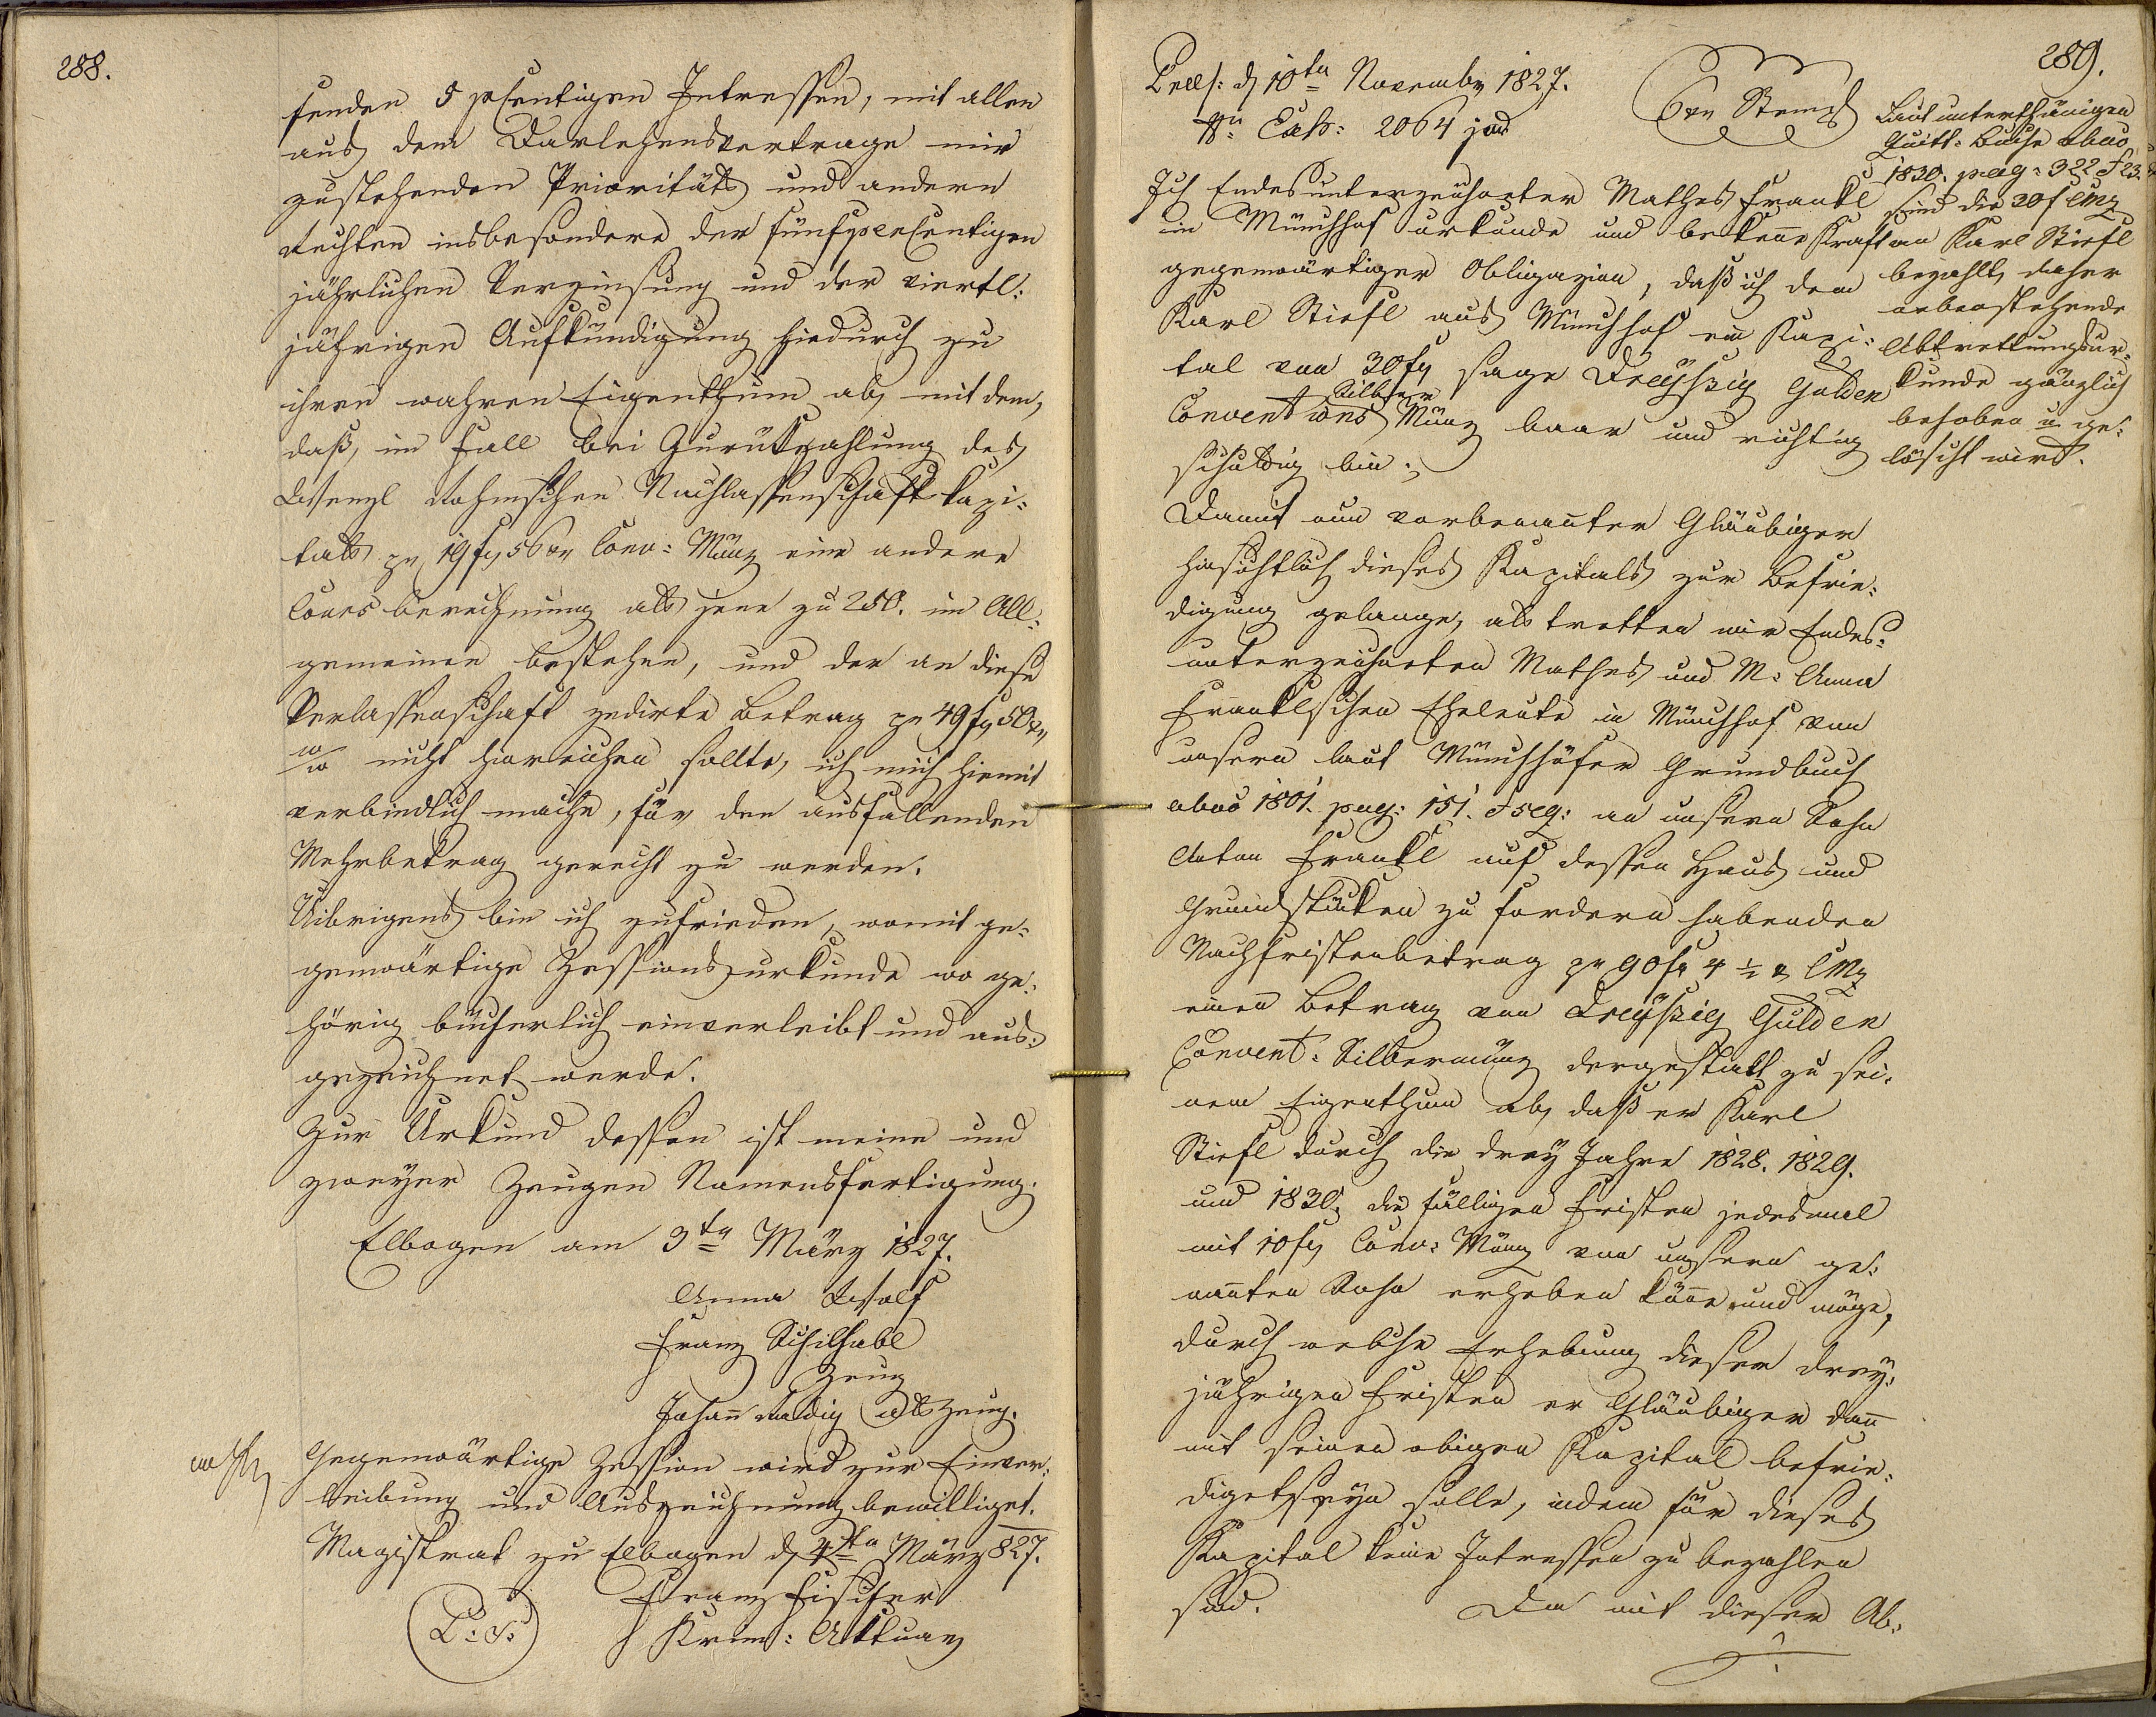 288.
senden 5 psentigen Intressen, mit allen
aus dem Darlehensvertrage mir
zustehenden Prioritäts und andern
Rechten insbesondere der fünfpercentigen
jährlichen Verzinsung und der viertl:
jährigen Aufkündigung hiedurch zu
ihren wahren Eigenthum ab, mit dem,
daß, im Fall bei Zurükzahlung des
Wenzl Rohmschen Nachlassenschaft Kapi:
tals pr 19 fl 56 xr Conv: Münz eine andere
Cours berechnung als jene zu 250. im All:
gemeinen bestehen, und der an diese
Verlassenschaft zedirte Betrag pr 49 fl 50 xr
W/W nicht hinreichen sollte, ich mich hiemit
verbindlich mache, für den ausfallenden
Mehrbetrag gerecht zu werden.
Uibrigens bin ich zufrieden, womit ge:
genwärtige Zessionsurkunde wo ge:
hörig bücherlich einverleibt und aus:
gezeichnet werde.
Zur Urkund dessen ist meine und
zweyer Zeugen Namensfertigung.
Elbogen am 3ten März 1827.
Anna Wolf
Franz Schilhabl
Zeug
Johan̄ Radig als Zeug.
Gegenwärtige Zession wird zur Einver:
leibung und Auszeichnung bewilliget.
Magistrat zu Elbogen d 4ten März 827.
Franz Fischer
L: S:
Krim: Aktuar
289.
Praes: d 10ten November 1827.
Nr Exh: 2064 jud
6 xr Stempl
Ich Endesunterzeichneter Mathes Frankl
in Münchhof urkunde und bekenne Kraft
gegenwärtiger Obligazion, daß ich dem
Karl Stiefl aus Münchhof ein Kapi:
tal von 30 fl sage Dreyßig Gulden
Conventions Silber Münz baar und richtig
schuldig bin.
Damit nun vorbenan̄ter Gläubiger
hinsichtlich dieses Kapitals zur Befrie:
digung gelange, als tretten wir Endes:
unterzeichneten Mathes und M: Anna
Franklschen Eheleute in Münchhof von
unsern laut Münchhöfer Grundbuch
abus 1801. pag: 151. & seq: an unsern Sohn
Anton Frankl auf dessen Haus und
Grundstücken zu fordern habenden
Nachfristenbetrag pr 90 fl 4 ½ xr CMz
einen Betrag von Dreyßig Gulden
Convent: Silbermünz dergestalt zu sei:
nem Eigenthum ab, daß er Karl
Stiefl durch die drey Jahre 1828. 1829.
und 1830. die fälligen Fristen jedesmal
mit 10 fl Conv: Münz von unsern ge:
nan̄ten Sohn erheben kön̄e und möge,
durch welche Erhebung dieser drey:
jährigen Fristen er Gläubiger dan̄
mit seinen obigen Kapital befrie:
diget seyn solle, indem für dieses
Kapital keine Intressen zu bezahlen
sind. Da mit dieser Ab:
Laut unterthänigen
Quitt: Buche abus
1830. pag: 322
sind die 30 f CMz
an Karl Stiefl
bezahlt, daher
nebenstehende
Abtrettungsur:
kunde gänzlich
behoben u ge:
löscht wird.